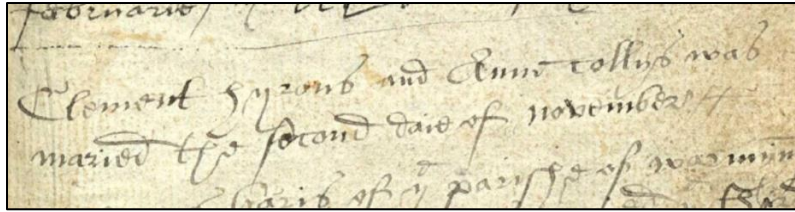 februarie
Clement hyrons and Anne collys was
maried the second daie of november
of yᵉ parishe of